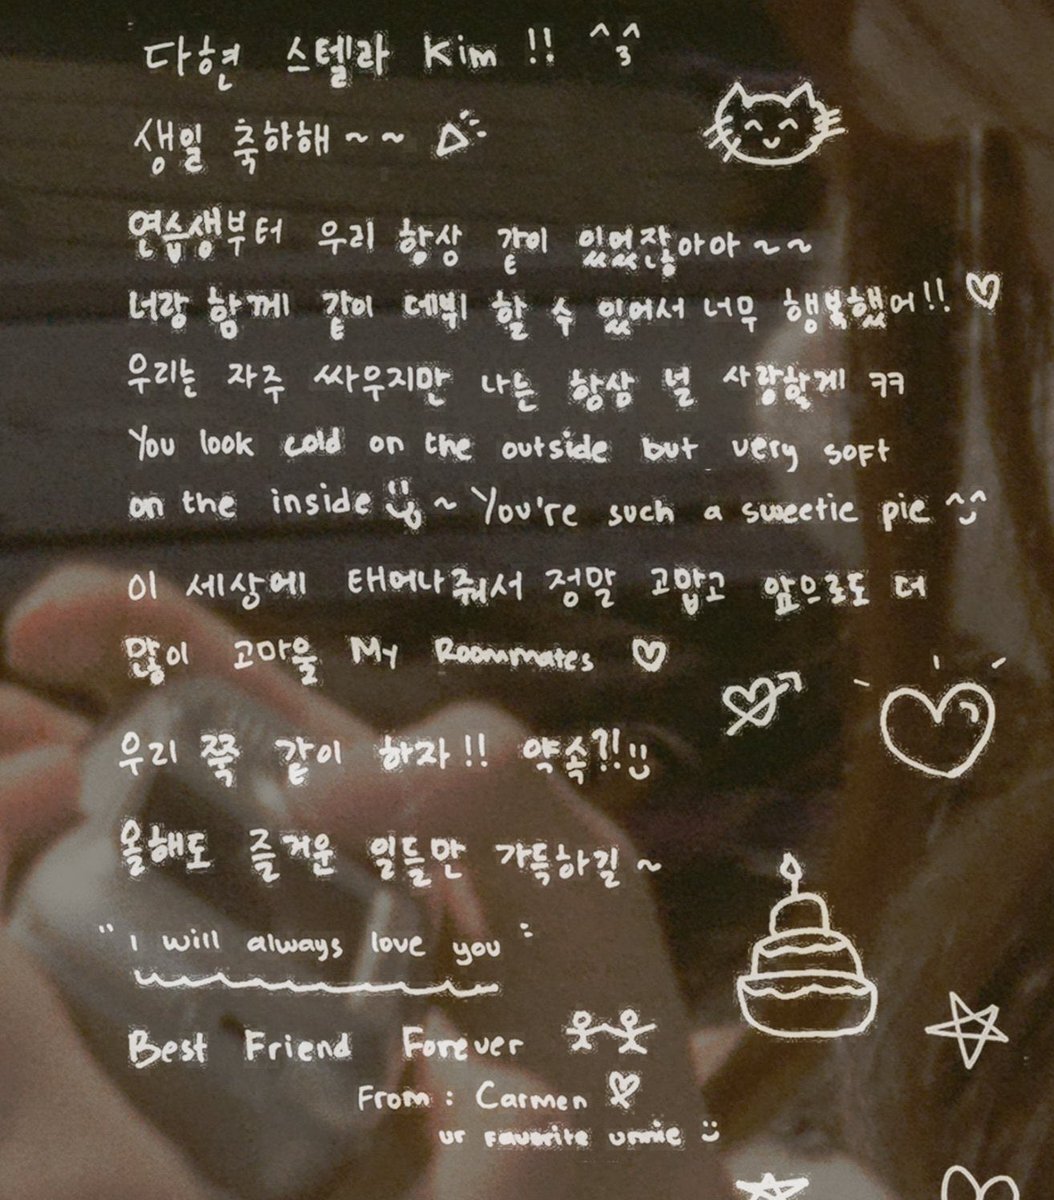 다현 스텔라 Kim !! ^3^
생일 축하해 ~ ~
연습생부터 우리 항상 같이 있었잖아아 ~ ~
너랑 함께 같이 데뷔 할 수 있어서 너무 행복했어!! ♡
우리는 자주 싸우지만 나는 항상 널 사랑할게 ㅋㅋ
You look cold on the outside but very soft
on the inside ~ You're such a sweetie pie ^^
이 세상에 태어나줘서 정말 고맙고 앞으로도 더
많이 고마울 My Roommates ♡
우리 쭉 같이 하자!! 약속?!!
올해도 즐거운 일들만 가득하길 ~
" I will always love you "
Best Friend Forever
From : Carmen ♡
ur favorite unnie :)